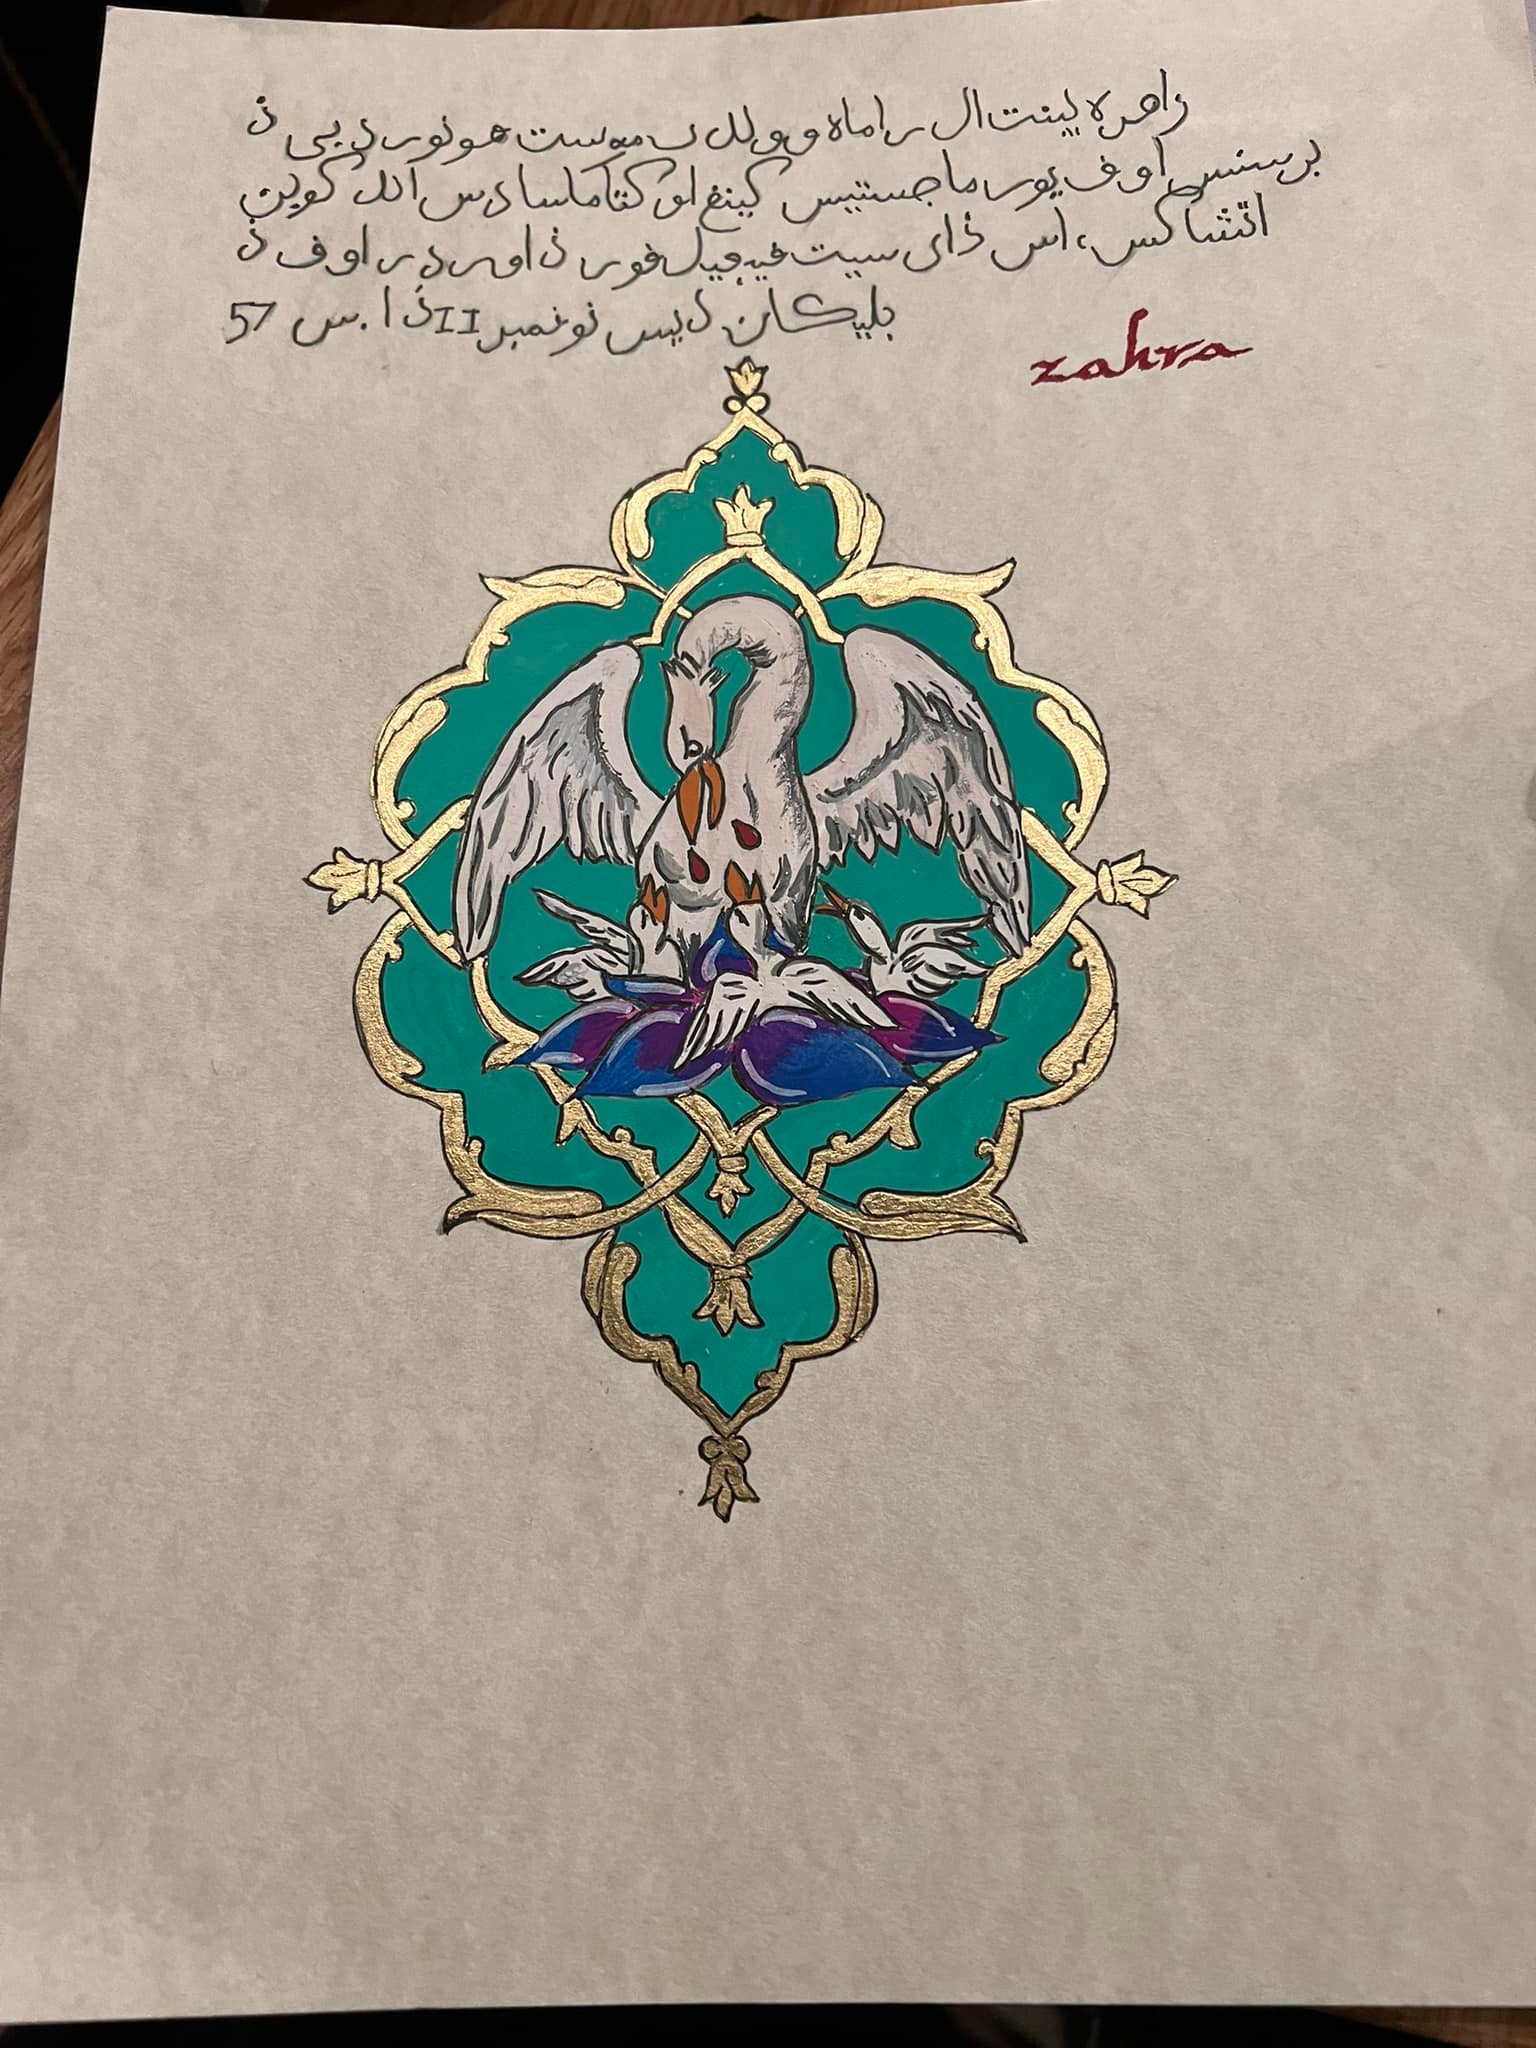 زاهره بينت ال راماه وولل ب موست هونورد بي ذ
برسنس اوف يور ماجستيس كينغ او كتاماسادس اند كوين
اتتثاكس، اس ذاي سيت فيجيل فور ذ اوردر اوف ذ
بليكان ذيس نوفمبر II ذ ا.س 57
zahra